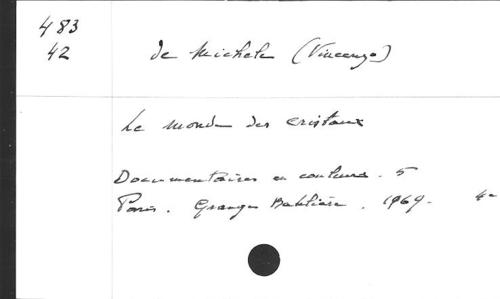 483
42
de Michele (Vincenzo)
Le monde des cristaux
Documentaires en couleurs. 5
Paris. Grange Batelière. 1969. 4°